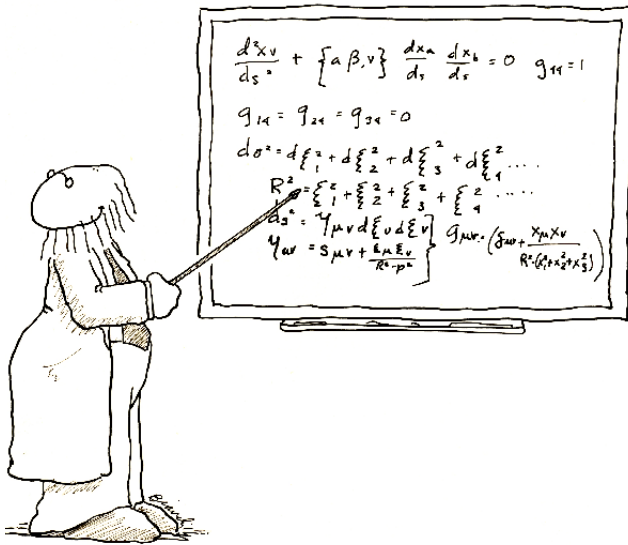 d²xν/ds² + {αβ,ν} dxa/ds dxb/ds = 0 g₄₄ = 1
g₁₄ = g₂₄ = g₃₄ = 0
dσ² = dξ₁² + dξ₂² + dξ₃² + dξ₄² ....
R² = ξ₁² + ξ₂² + ξ₃² + ξ₄² .....
ds² = γμν dξυ dξν
γμν = Sμν + ξμ ξν/R²-p² } gμν = (δμν + xμ xν/R²-(x₁²+x₂²+x₃²))